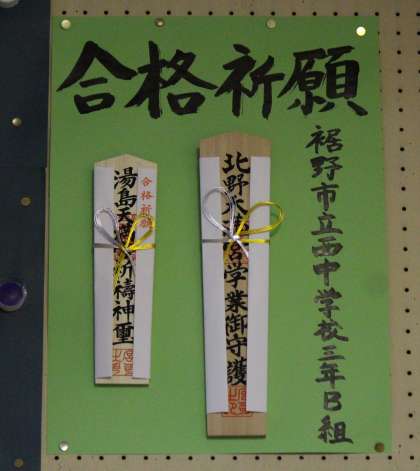 合格祈願
裾野市立西中学校三年B組
北野天満宮学業御守護
合格祈願
湯島天満宮祈禱神璽